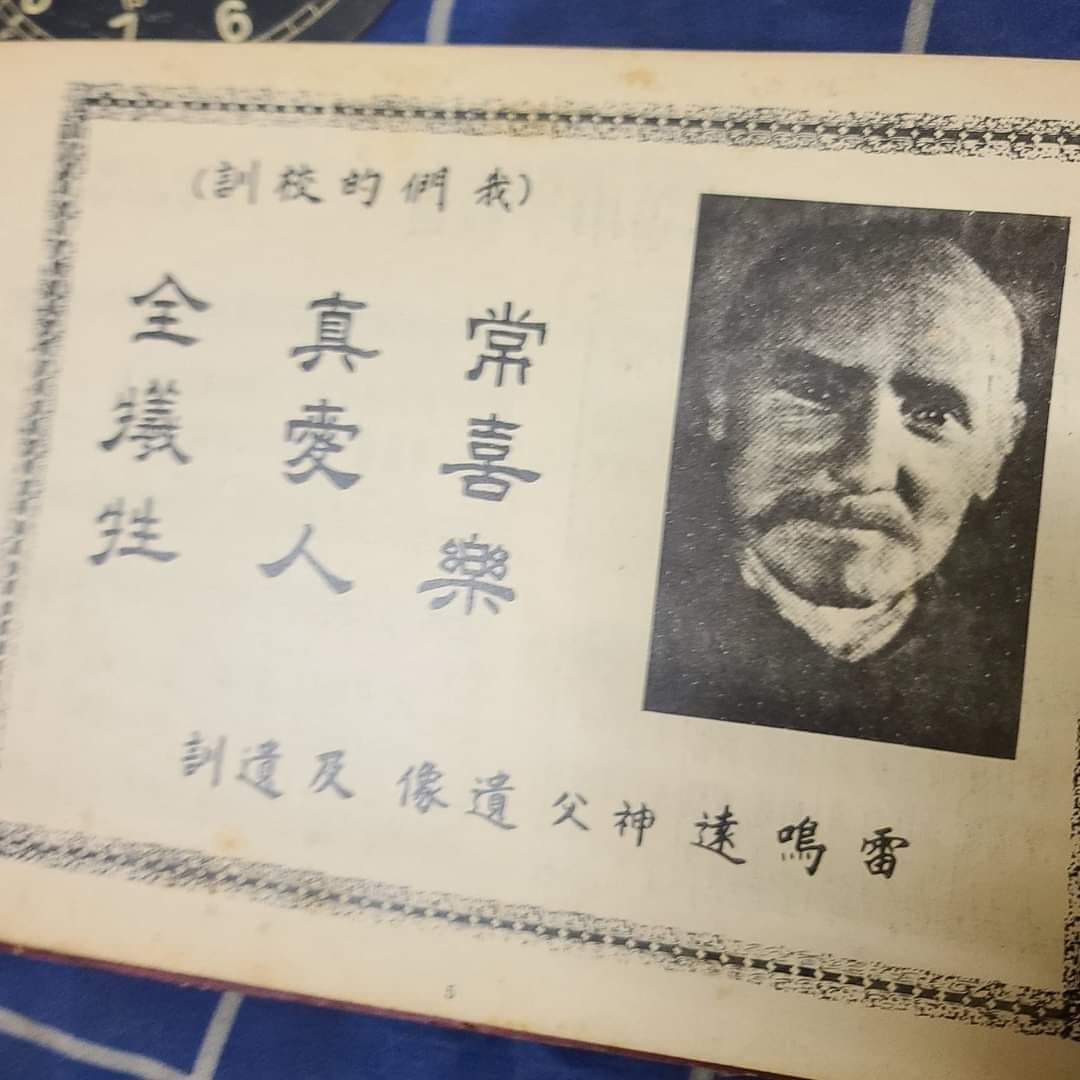 (我們的校訓)
常喜樂
真愛人
全犧牲
雷鳴遠神父遺像及遺訓
5
6
7